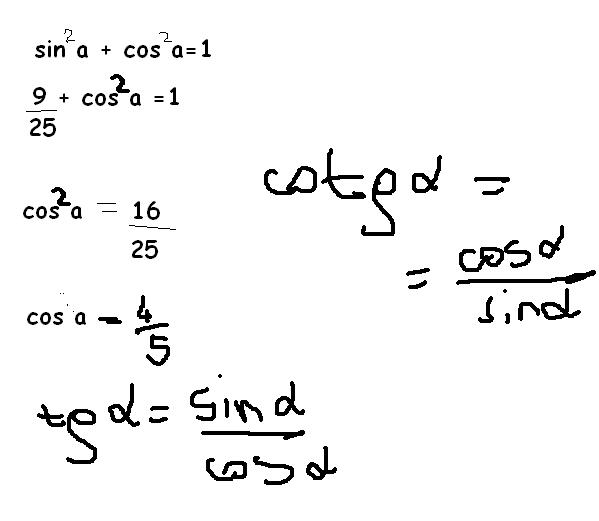 sin²a + cos²a=1
9/25 + cos²a =1
cos²a = 16/25
cos a = 4/5
tg α = sin α / cos α
cotg α =
= cos α / sin α